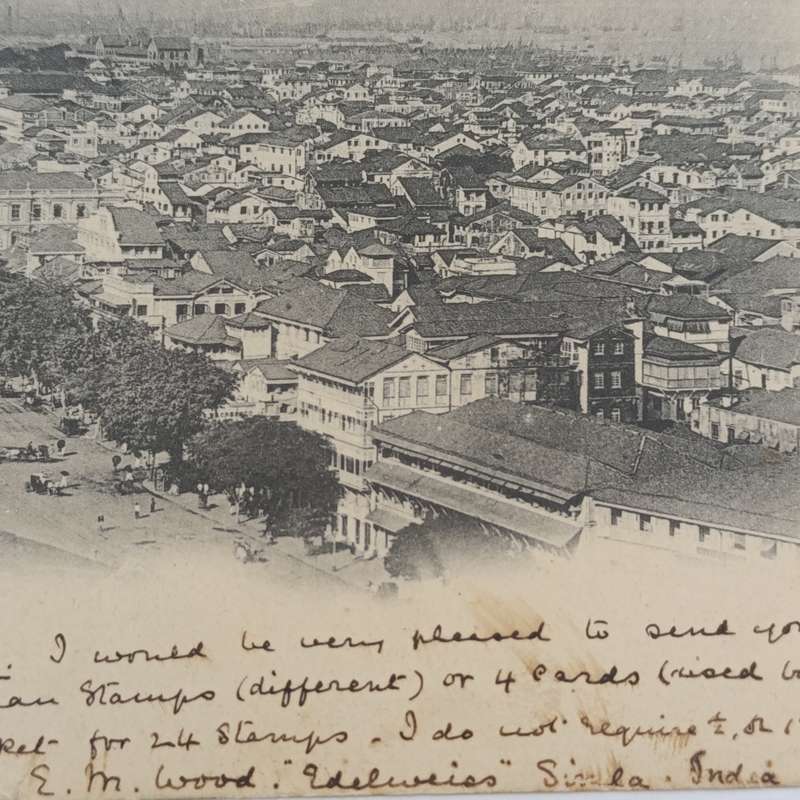 . I would be very pleased to send you
ian Stamps (different) or 4 Cards (used b
ket for 24 Stamps. I do not require ½, or 1
E. M. Wood. "Edelweiss" Simla. India